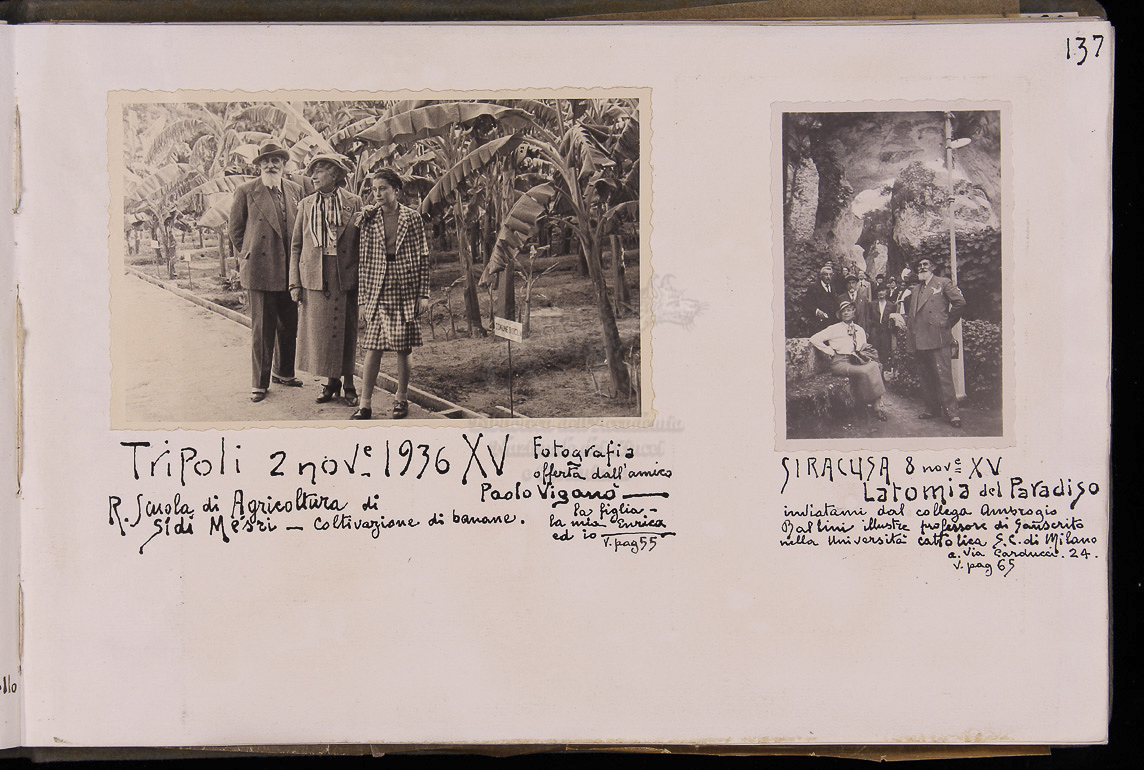 137
Tripoli 2 nov.e 1936 XV
R. Scuola di Agricoltura di
Sidi Mesri — Coltivazione di banane.
Fotografia
offerta dall'amico
Paolo Viganò —
la figlia -
la mia Enrica
ed io —
v. pag 55
SIRACUSA 8 nov.e XV
Latomia del Paradiso
inviatami dal collega Ambrogio
Ballini illustre professore di Sanscrito
nella Università cattolica S.C. di Milano
a. Via Carducci. 24.
v. pag 65